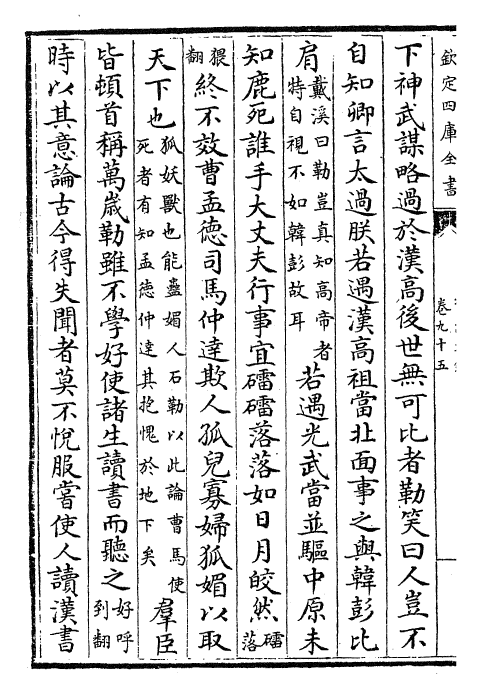 欽定四庫全書
卷九十五
下神武謀略過於漢高後世無可比者勒笑曰人豈不
自知卿言太過朕若遇漢高祖當北面事之與韓彭比
肩戴溪曰勒豈真知高帝者特自視不如韓彭故耳若遇光武當並驅中原未
知鹿死誰手大丈夫行事宜礌礌落落如日月皎然礌落
猥翻終不效曹孟德司馬仲達欺人孤兒寡婦狐媚以取
天下也狐妖獸也能蠱媚人石勒以此論曹馬使死者有知孟德仲達其抱愧於地下矣羣臣
皆頓首稱萬歲勒雖不學好使諸生讀書而聽之好呼到翻
時以其意論古今得失聞者莫不悅服嘗使人讀漢書